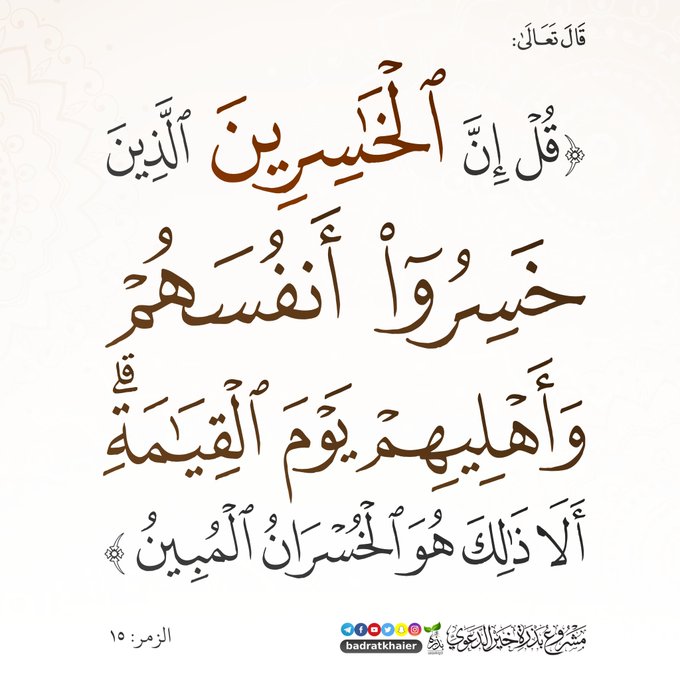 قَالَ تَعَالَىٰ:
﴿قُلْ إِنَّ ٱلْخَٰسِرِينَ ٱلَّذِينَ
خَسِرُوٓا۟ أَنفُسَهُمْ
وَأَهْلِيهِمْ يَوْمَ ٱلْقِيَٰمَةِ ۗ
أَلَا ذَٰلِكَ هُوَ ٱلْخُسْرَانُ ٱلْمُبِينُ﴾
مشروع بذرة خير الدعوي
بذرة
badratkhaier
الزمر: ١٥